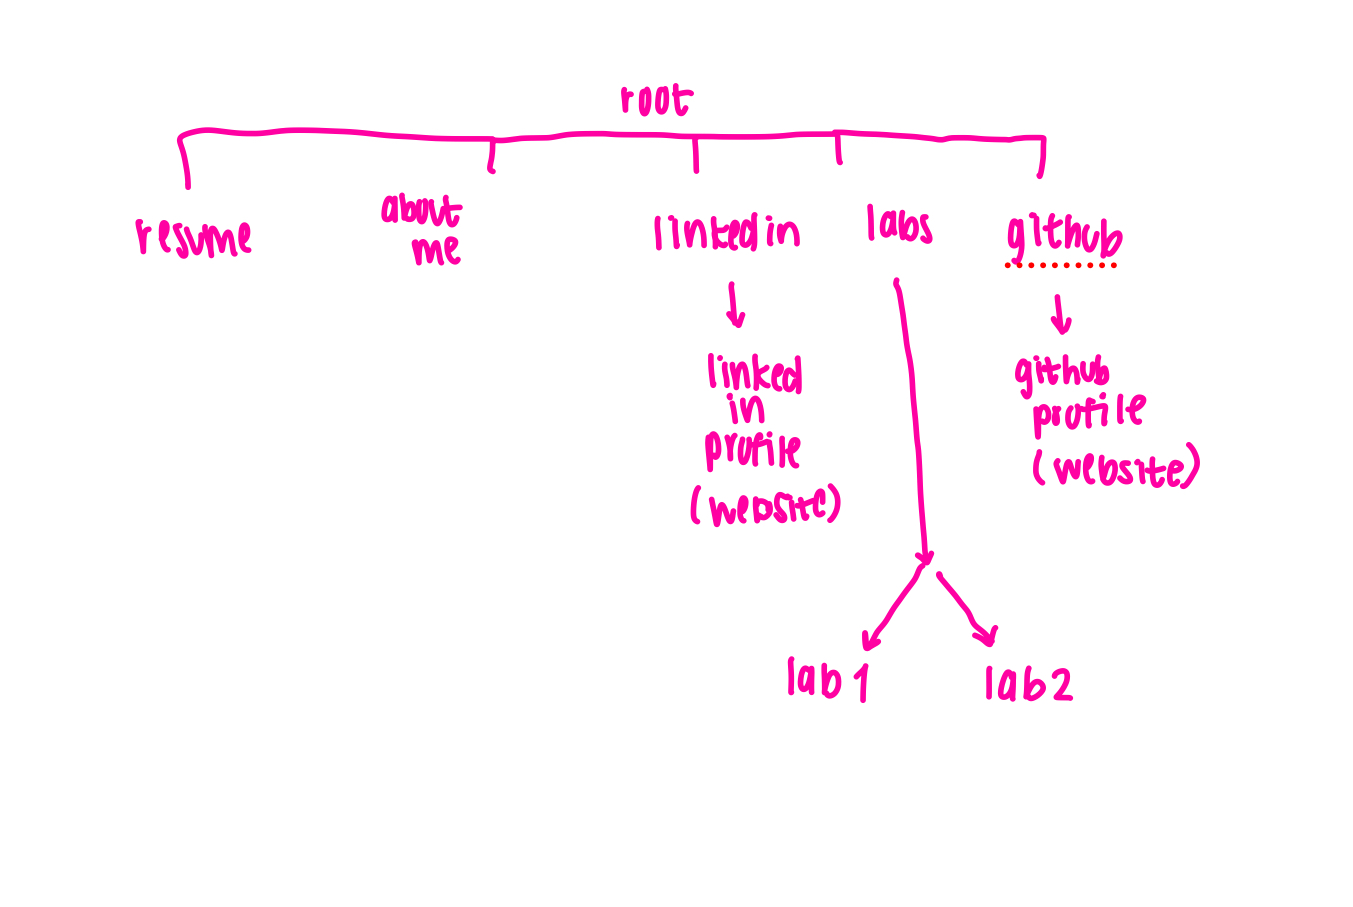 root
resume
about
me
linkedin
labs
github
linked
in
profile
(website)
github
profile
(website)
lab 1
lab 2